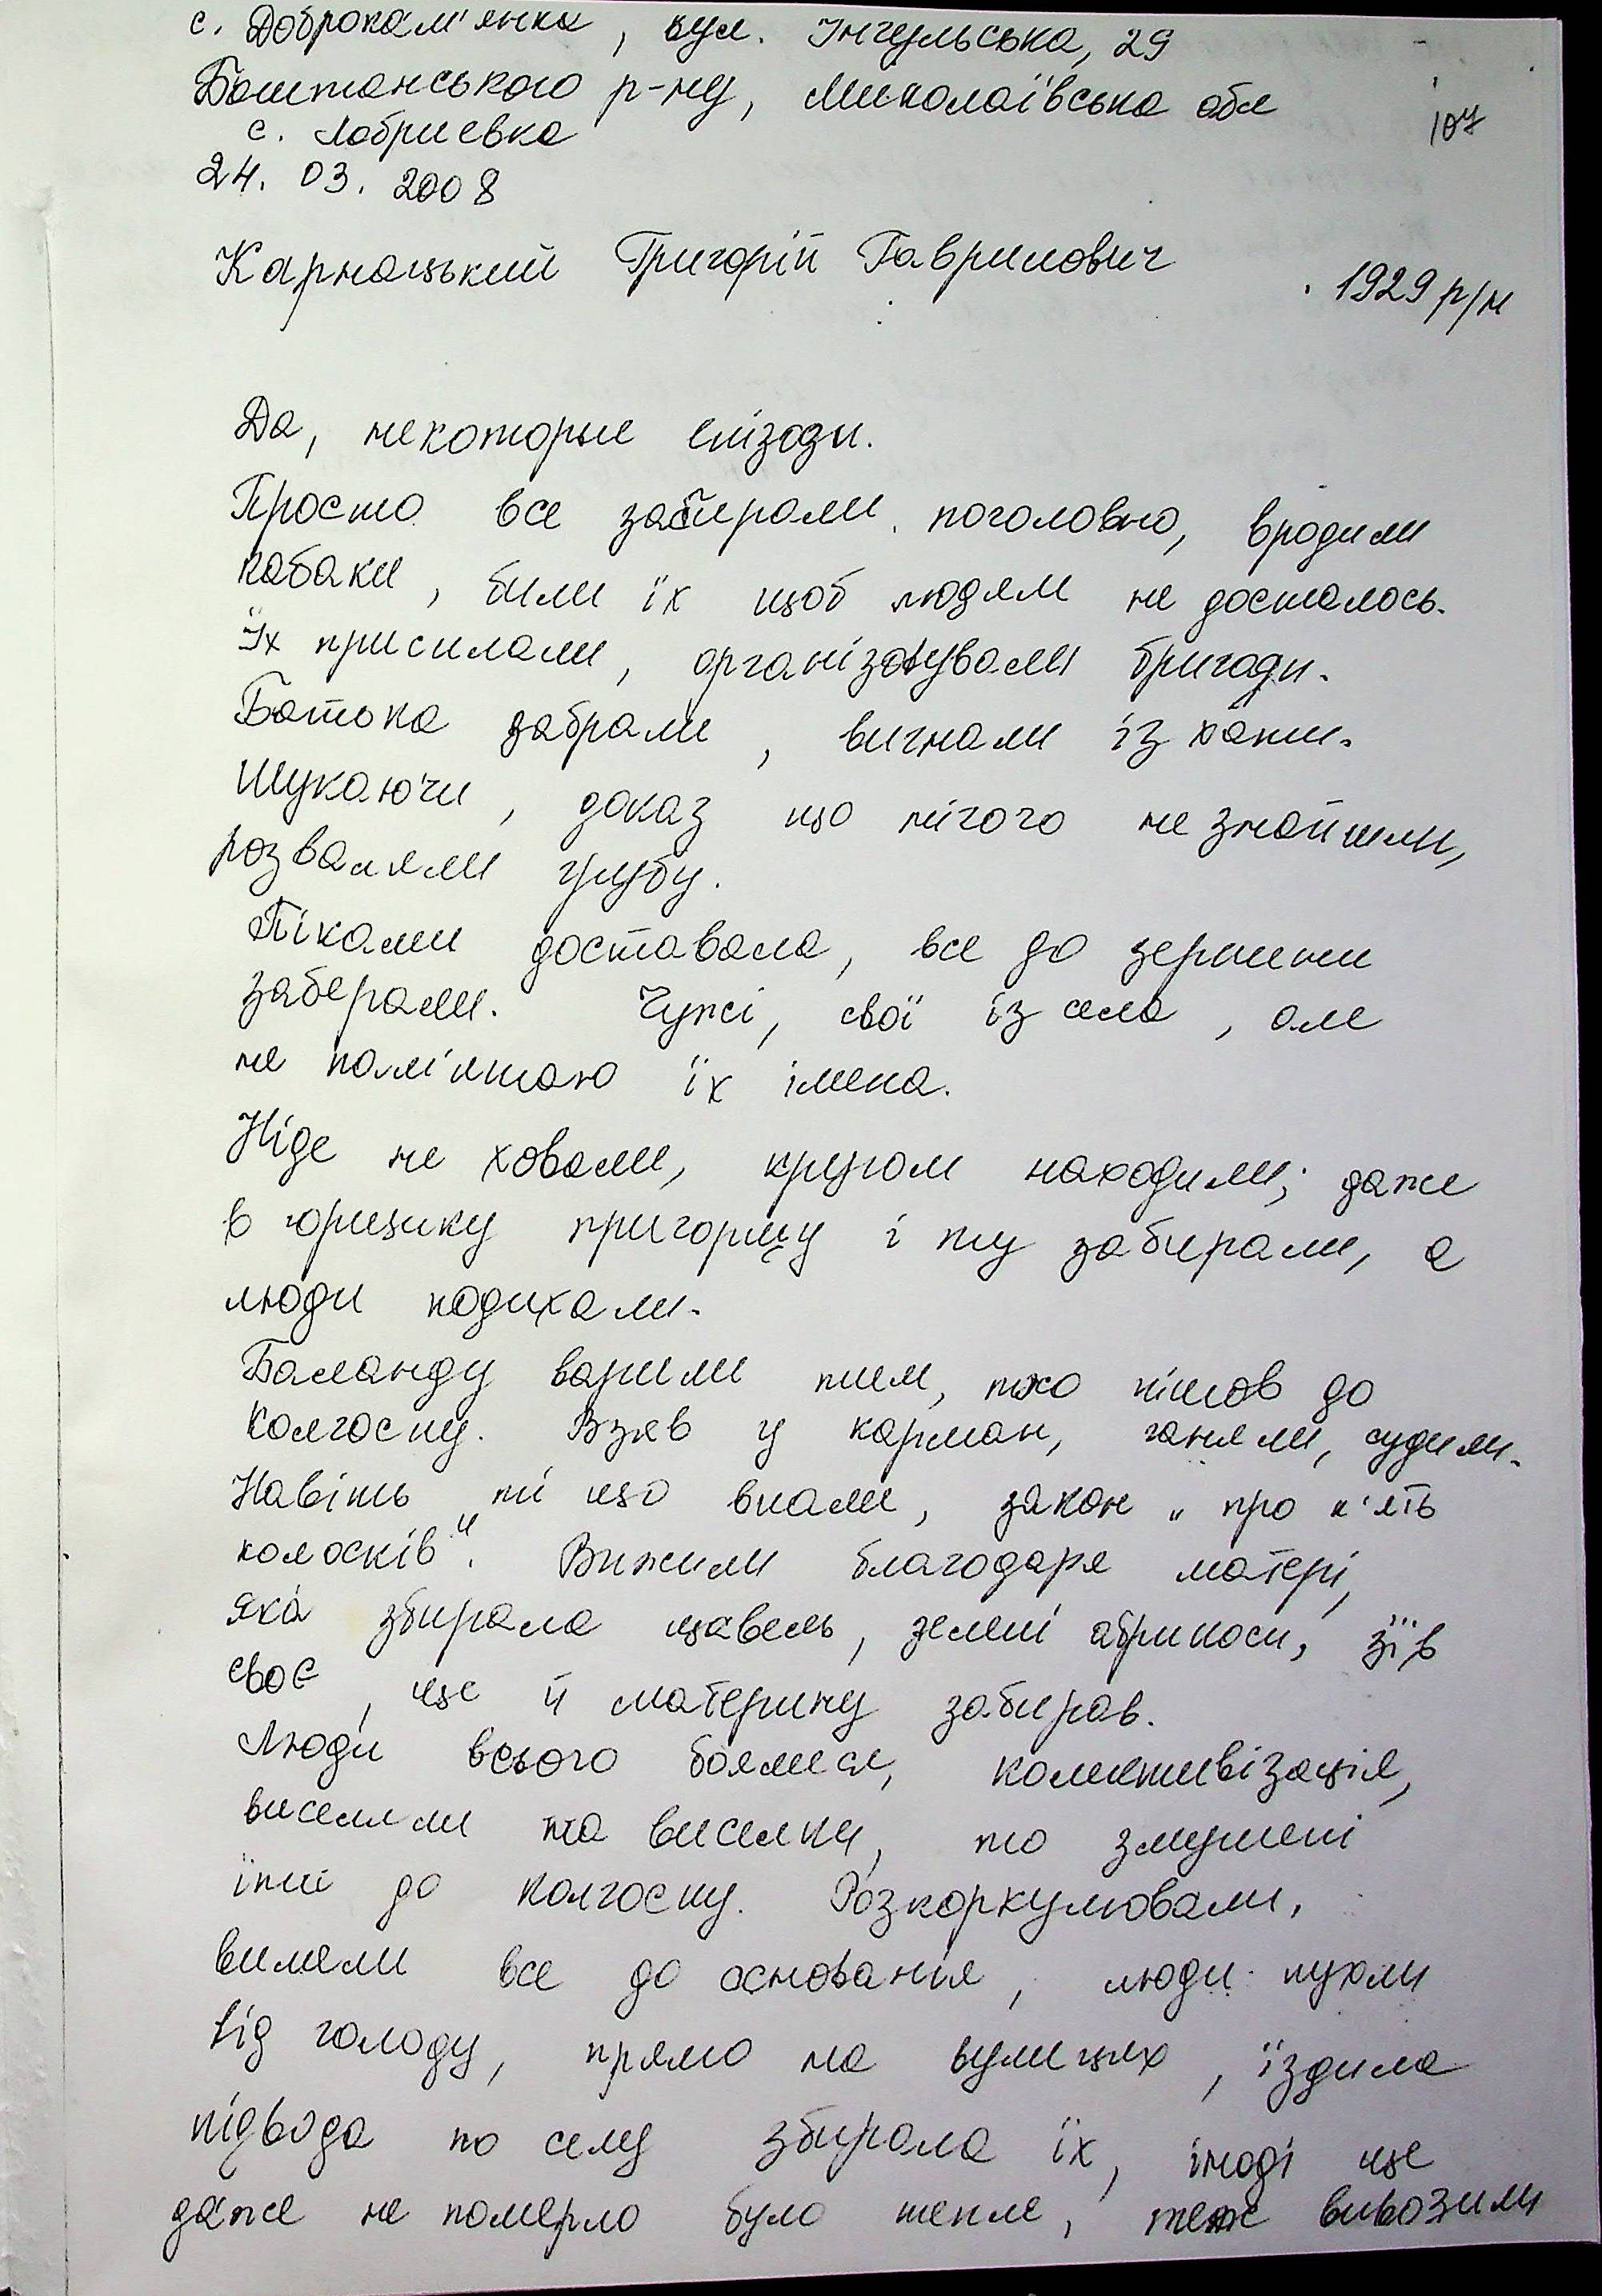 с. Доброкам'янка, вул. Інгульська, 29
Баштанського р-ну, Миколаївська обл
107
с. Лабриевка
24. 03. 2008
Карнацький Григорій Гаврилович
1929 р/н
Да, некоторые епізоди.
Просто все забирали поголовно, вродили
кабаки, били їх щоб людям не досталось.
Їх присилали, організовували бригади.
Батька забрали, вигнали із хати.
Шукаючи, доказ що нічого не знайшли,
розваляли грубу.
Піками доставала, все до зернини
заберали. Чужі, свої із села, але
не пам'ятаю їх імена.
Ніде не ховали, кругом находили; даже
в горщику пригорщу і ту забирали, а
люди подихали.
Баланду варили тим, хто пішов до
колгоспу. Взяв у карман, ганяли, судили.
Навіть ті що впали, закон „про п'ять
колосків". Вижили благодаря матері,
яка збирала щавель, зелені абрикоси, зїв
своє, ще й материну забирав.
Люди всього боялися, колективізація,
виселяли на виселки, то змушені
їти до колгоспу. Розкоркулювали,
виляли все до основанія, люди пухли
від голоду, прямо на вулицях, їздила
підвода по селу збирала їх, іноді ще
даже не померло було тепле, теже вивозили